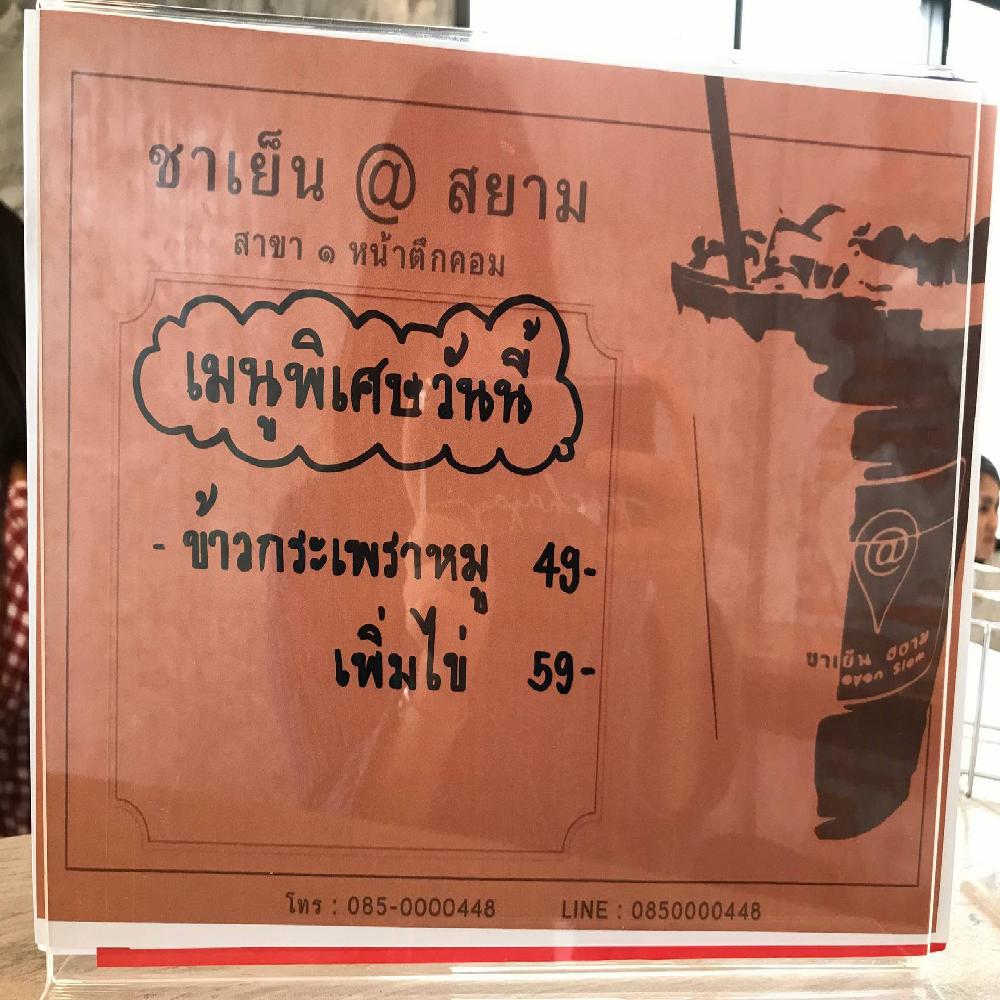 ชาเย็น @ สยาม
สาขา ๑ หน้าตึกคอม
เมนูพิเศษวันนี้
- ข้าวกระเพราหมู 49-
เพิ่มไข่ 59-
@
ชาเย็น สยาม
โทร : 085-0000448 LINE : 0850000448